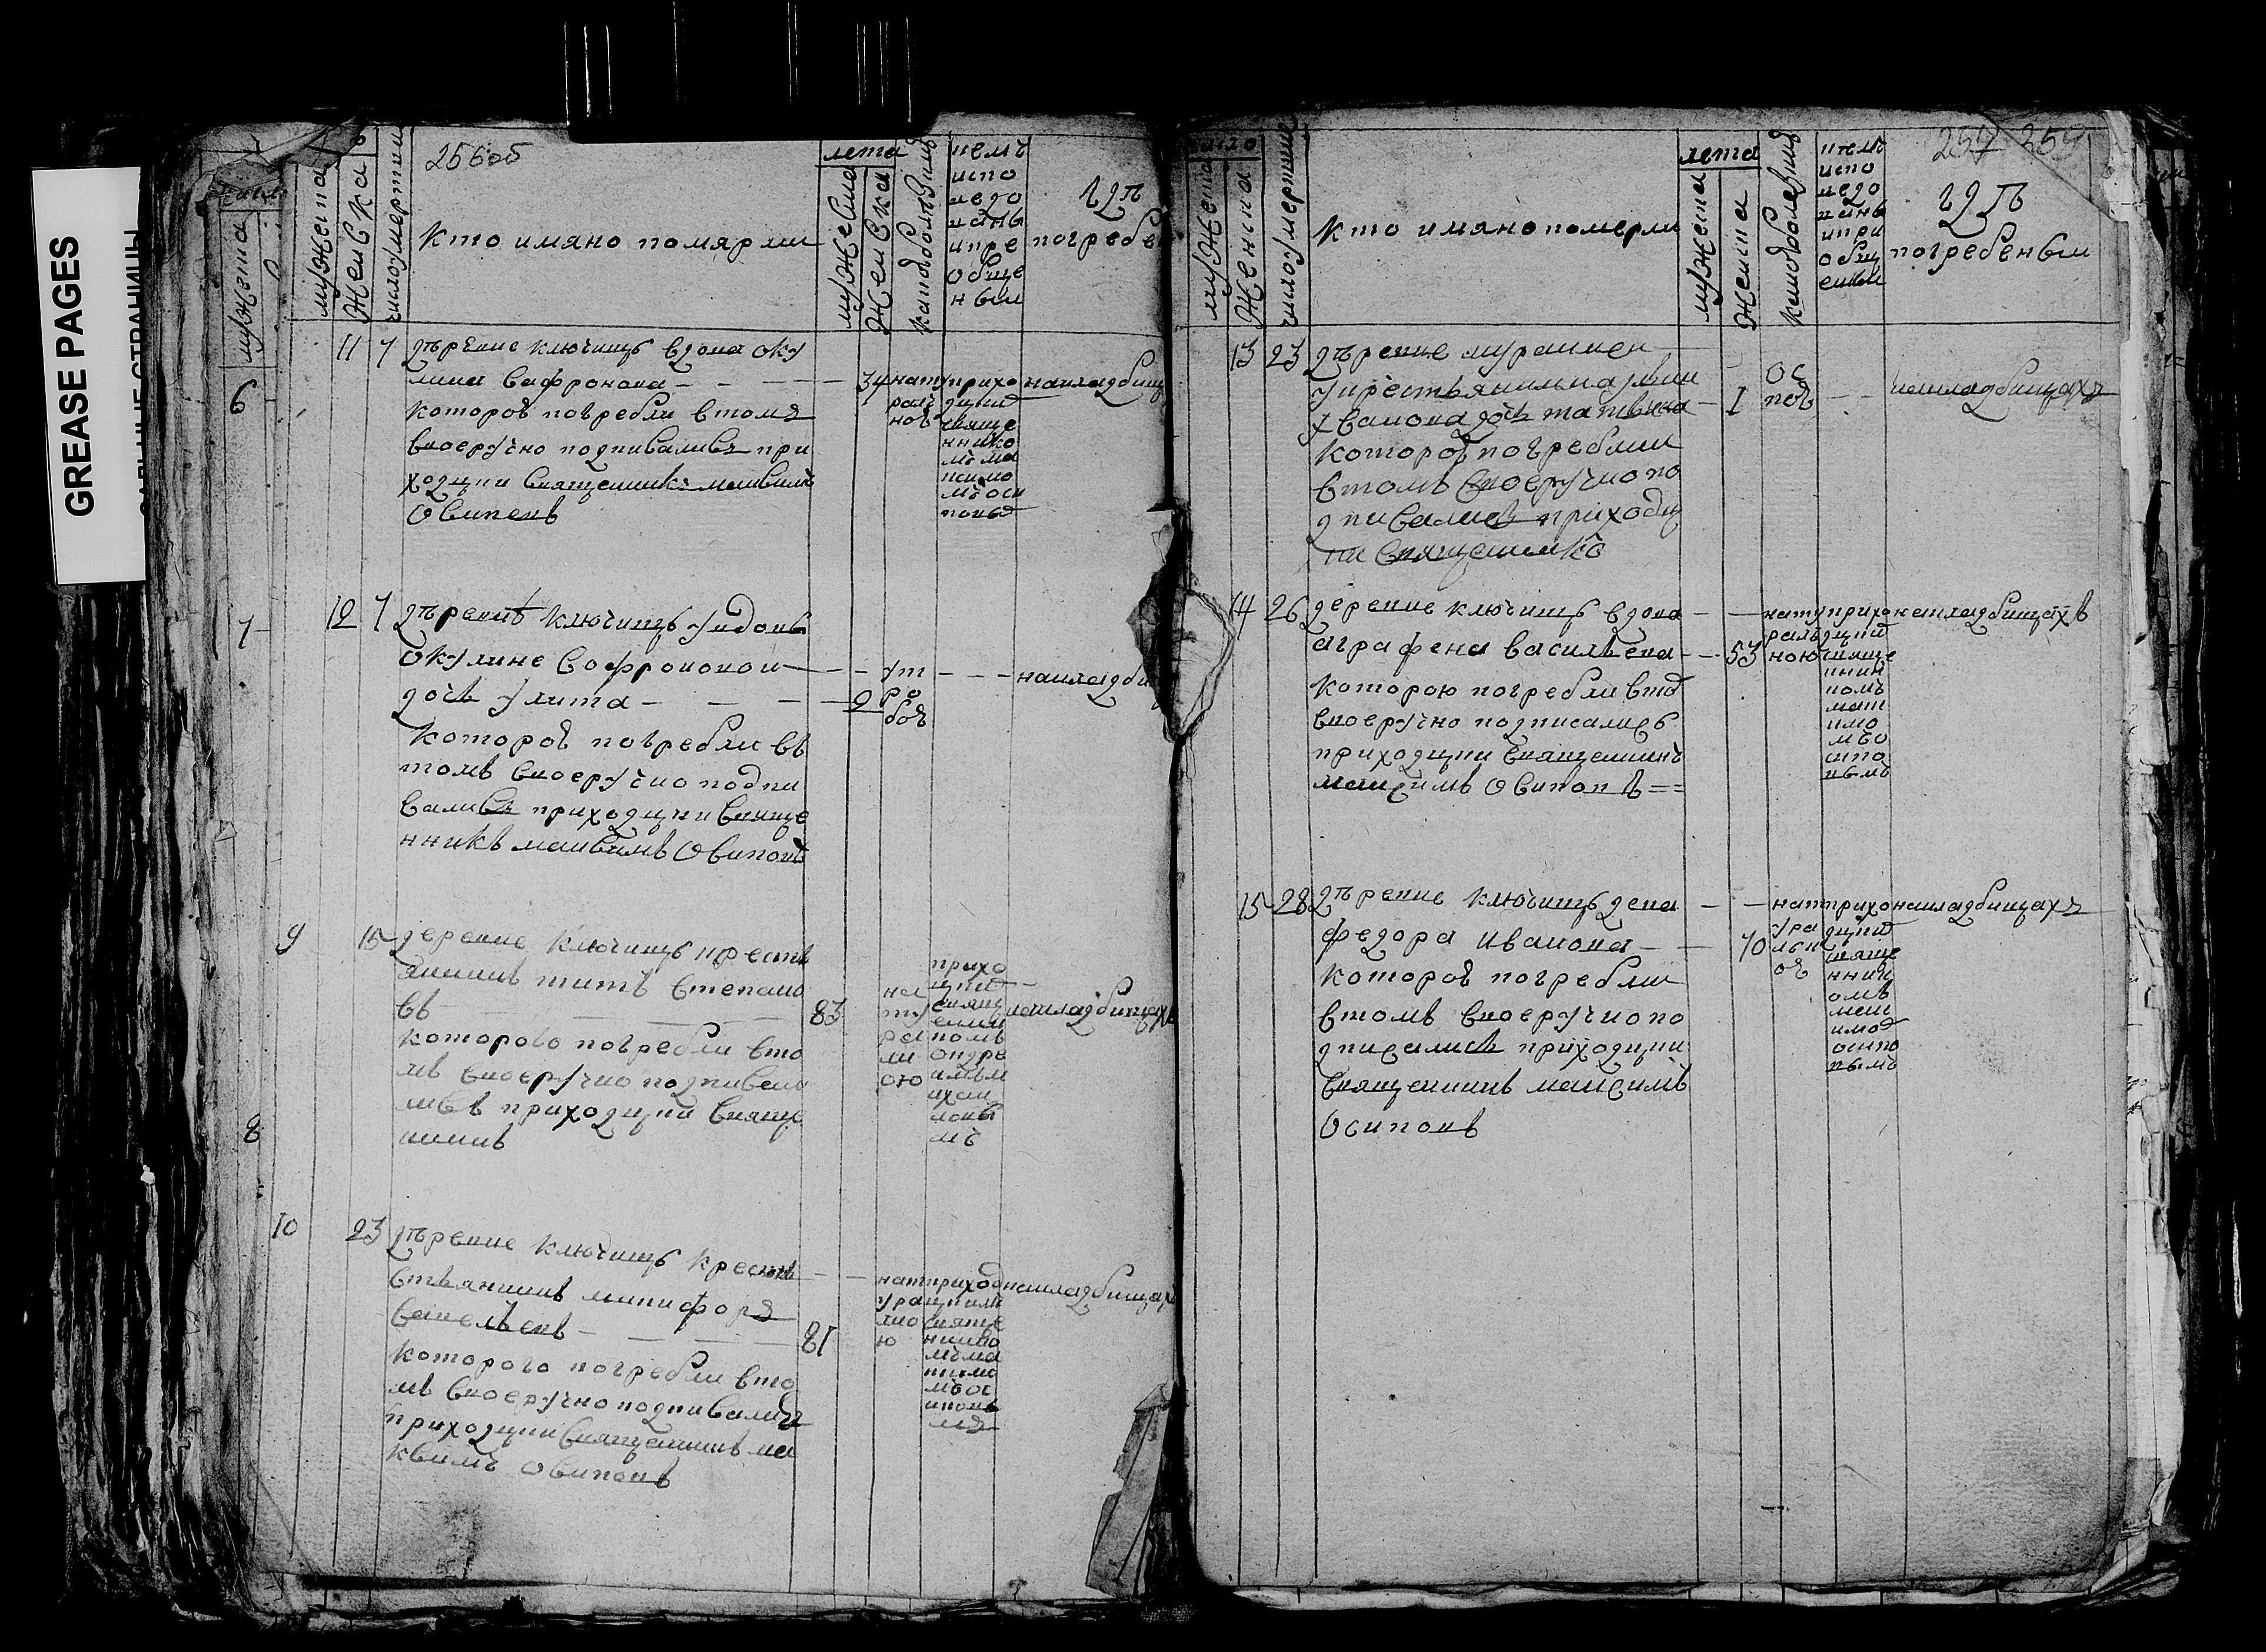 GREASE PAGES
256об
число
мужеска
женска
число умертии
кто имяно помярли
лета
мужеска
женска
какою болезнию
кемъ
испо
ведо
ваны
и при
обще
ны
гдѣ
погребе
6
11 7 дѣревне ключищъ вдова оку
лина сафронова 34
которою погребли в томъ
своеручно подписались при
ходцки священникъ максимъ
осиповъ
нату
раль
ною
прихо
дцким
свяще
ннико
мъ ма
ксимо
мъ оси
повы
на кладбищ
7
12 7 дѣревнѣ ключищъ у вдовы
окулине софроновои
дочь улита 2
которою погребли въ
томъ своеручно подпи
сались приходцки свяще
нникъ максимъ осиповъ
ут
ро
бою
на кладби
9 15 деревне ключищъ кресть
янинъ титъ степано
въ 83
которого погребли в то
мъ своеручно подписали
приходцки свяще
нникъ
на
ту
ра
ль
ою
прихо
дцким
свящ
енни
комъ
андре
имъ м
ихаи
ловы
мъ
на кладбищахъ
8
10 23 дѣревне ключищъ крест
стьянинъ никифоръ
савельевъ 81
которого погребли в то
мъ своеручно подписались
приходцки священникъ ма
ксимъ осиповъ
нат
ура
лно
ю
приход
цким
свяще
ннико
мъ ма
ксимо
мъ ос
ипов
мъ
на кладбищах
число
мужеска
женска
число умертвие
кто имяно померли
лета
мужеска
женска
какою болезнию
кемъ
испо
ведо
ваны
и при
общ
ены
257 257
гдѣ
погребены
13 23 дѣревне
у крестьянина
дочь татьяна 1
которою погребли
в томъ своеручно по
дписались приходц
ки священникъ
ос
пою
на кладбищахъ
14 26 деревне ключищъ вдова
аграфена васильева 53
которою погребли в то
своеручно подписались
приходцки священникъ
максимъ осиповъ ==
нату
раль
ною
прихо
дцким
свяще
нни
комъ
мак
симо
мъ о
сипо
вымъ
на кладбищахъ
15 28 дѣревне ключищъ дева
федора иванова 70
которою погребли
в томъ своеручно по
дписались приходцки
священникъ максимъ
осиповъ
нат
ура
льн
ою
прихо
дцким
свяще
нник
омъ
мак
симо
осипо
вымъ
на кладбищахъ